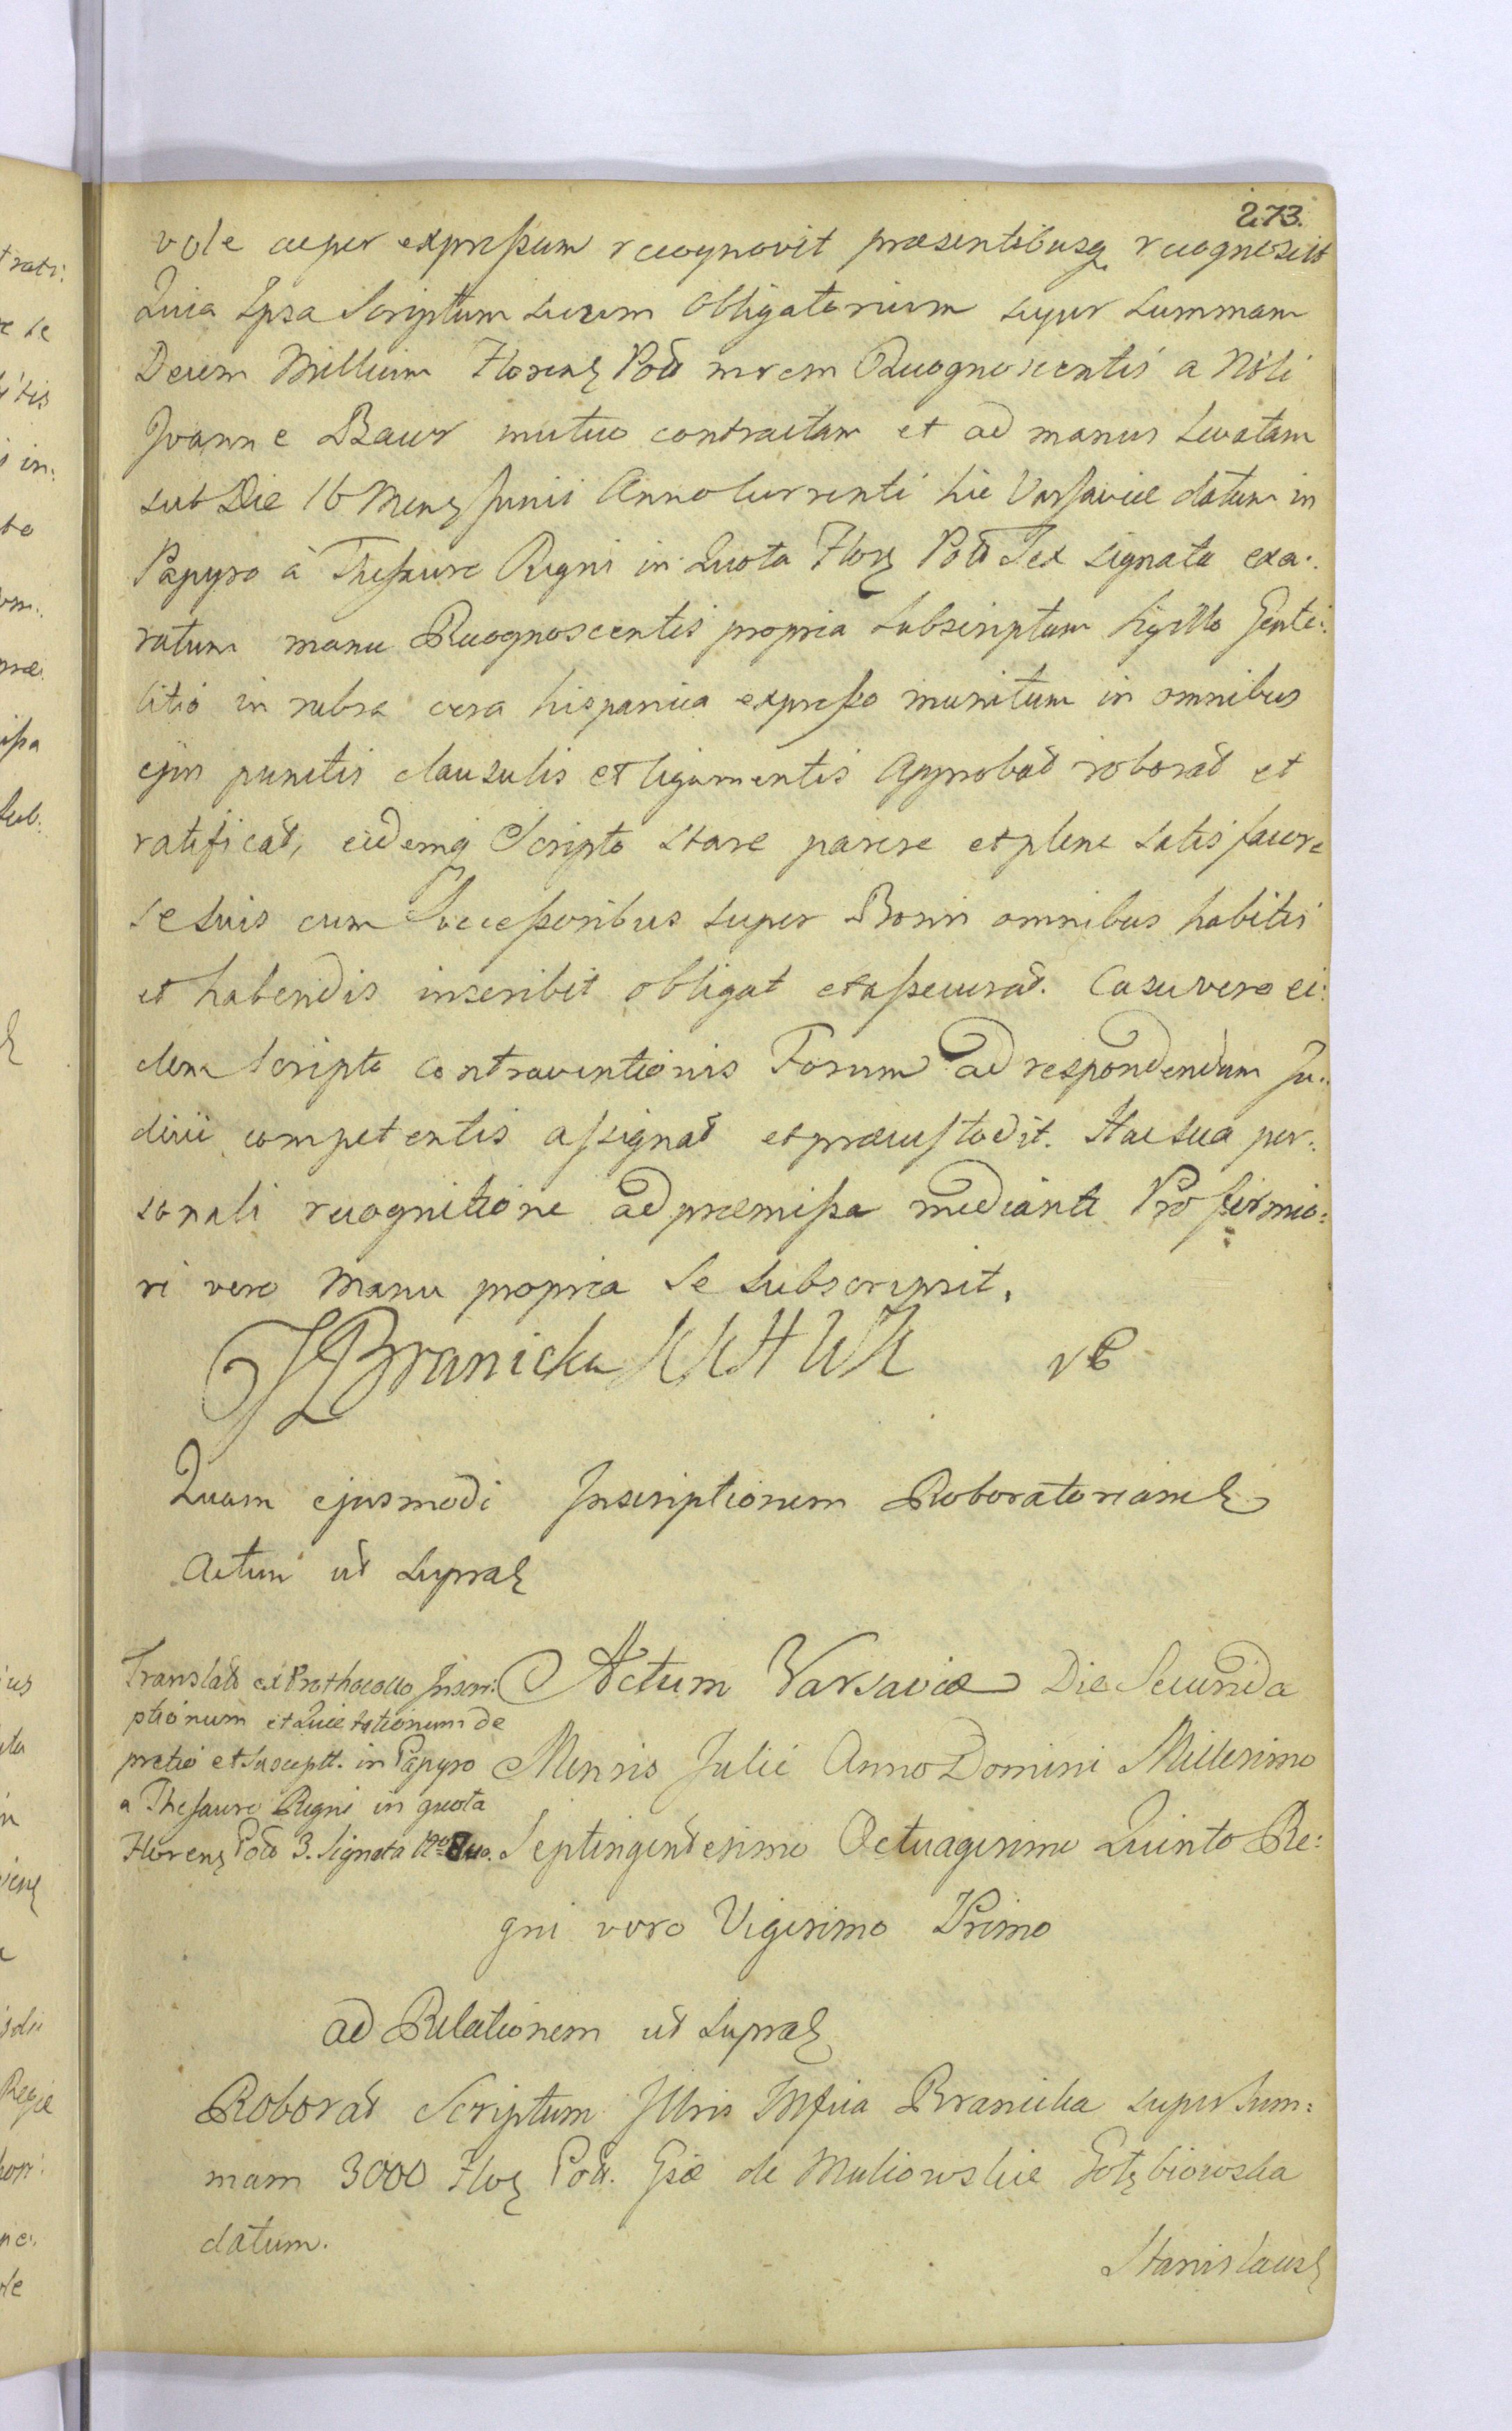 273.
vole ac per expressum recognovit præsentibusq recognoscit
Quia Ipsa Scriptum suum obligatorium super summam
Decem Millium Floreng Poll mrem Recognoscentis a Nobili
Joanne Baur mutuo contractam et ad manus levatam
sub Die 16 Meng Junii Anno Currenti hic Varsaviæ datum in
Papyro à Thesauro Regni in Quota Flor Poll Sex signata exa:
ratum manu Recognoscentis propria subscriptum sigillo Genti:
litio in rubra cera hispanica expresso munitum in omnibus
ejus punctis clausulis et ligamentis approbat roborat et
ratificat, eidemq Scripto stare parere et plene satisfacere
se suis cum Successoribus super Bonis omnibus habitis
et habendis inscribit obligat et assecurat. Casu vero ei:
dem Scripto contraventionis Forum ad respondendum Ju:
dicii competentis assignat et præcustodit. Hac sua per:
sonali recognitione ad præmissa mediante Pro firmio:
ri vero manu propria se subscripsit.
Branicka
Quam ejusmodi Inscriptionem Roboratoriam
Actum ut supra
Translat ex Prothocollo Inscri:
ptionum et Quietationum de
pretio et suscept. in Papyro
a Thesauro Regni in quota
Floreng Poll 3. Signata
Actum Varsaviæ Die Secunda
Mensis Julii Anno Domini Millesimo
Septingentesimo Octuagesimo Quinto Re:
gni vero Vigesimo Primo
ad Relationem ut supra
Roborat Scriptum Illris Mfica Branicka super Sum:
mam 3000 Flo Poll. Gsæ de Maliowskie Gołębiowska
datum.
Stanislaus